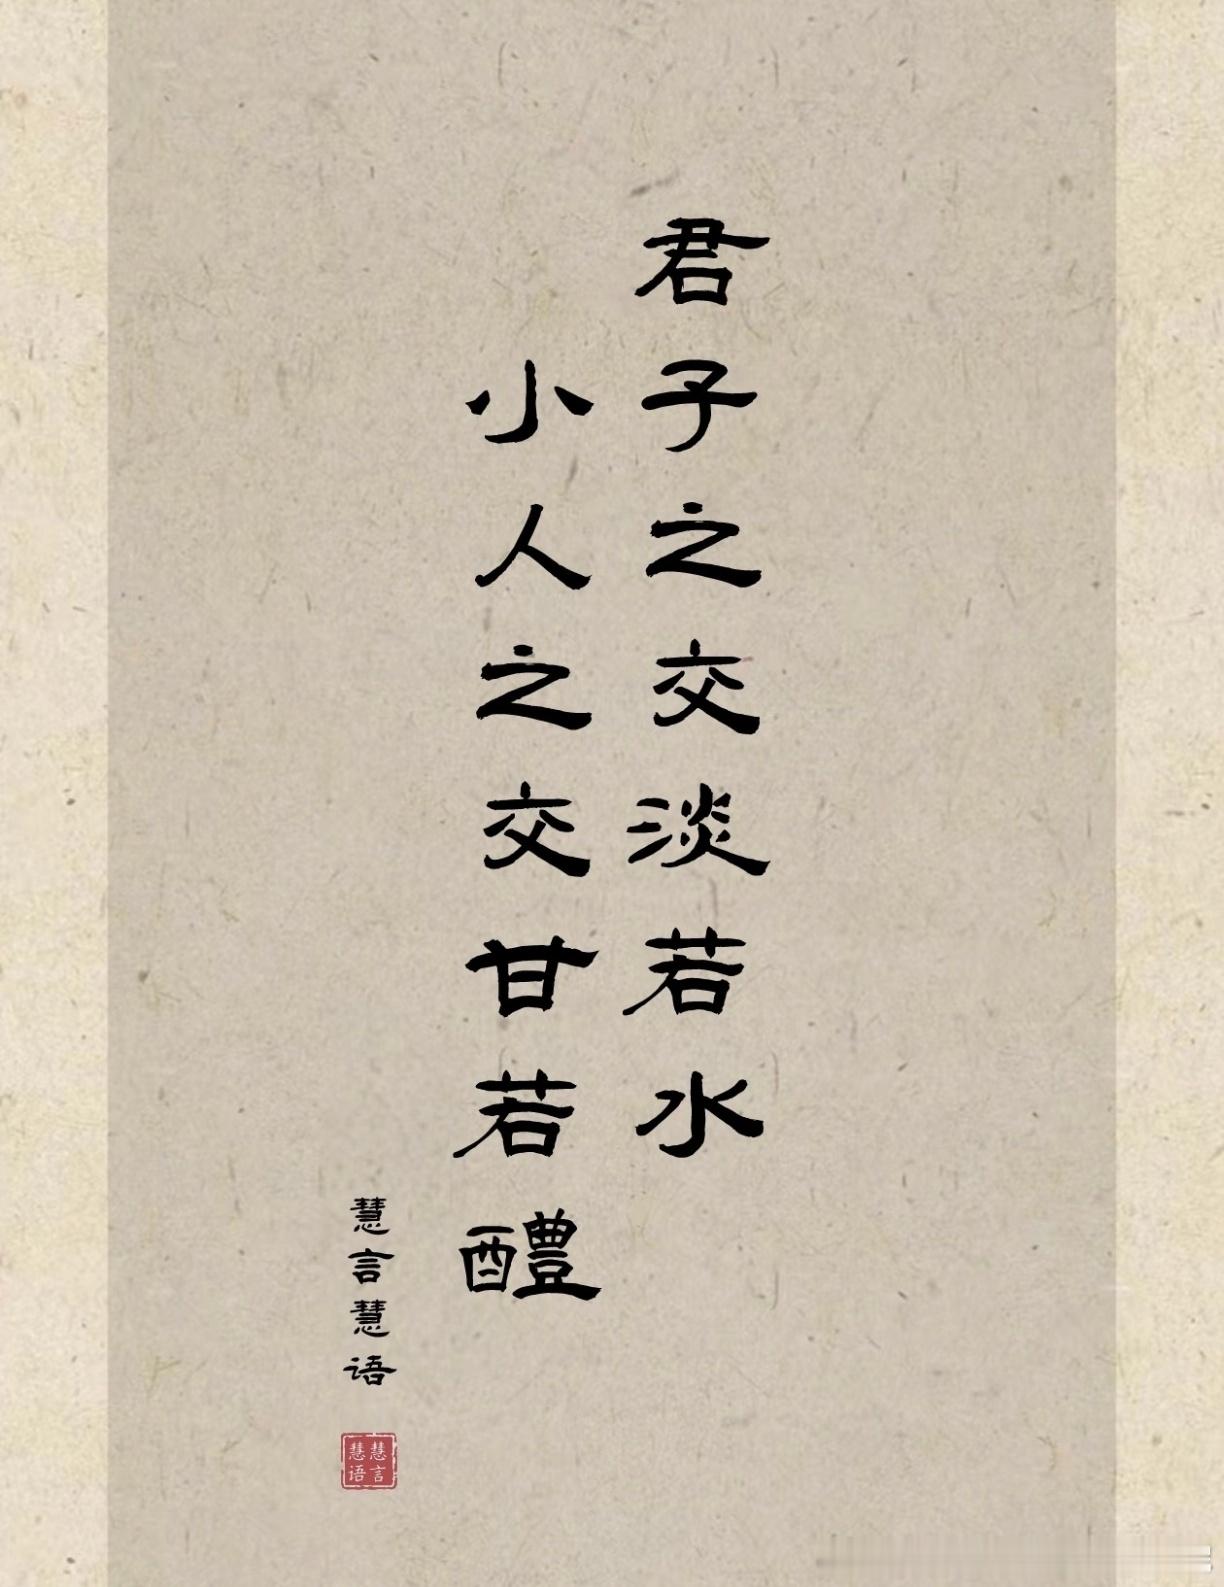 君子之交淡若水
小人之交甘若醴
慧言慧语
慧言
慧语